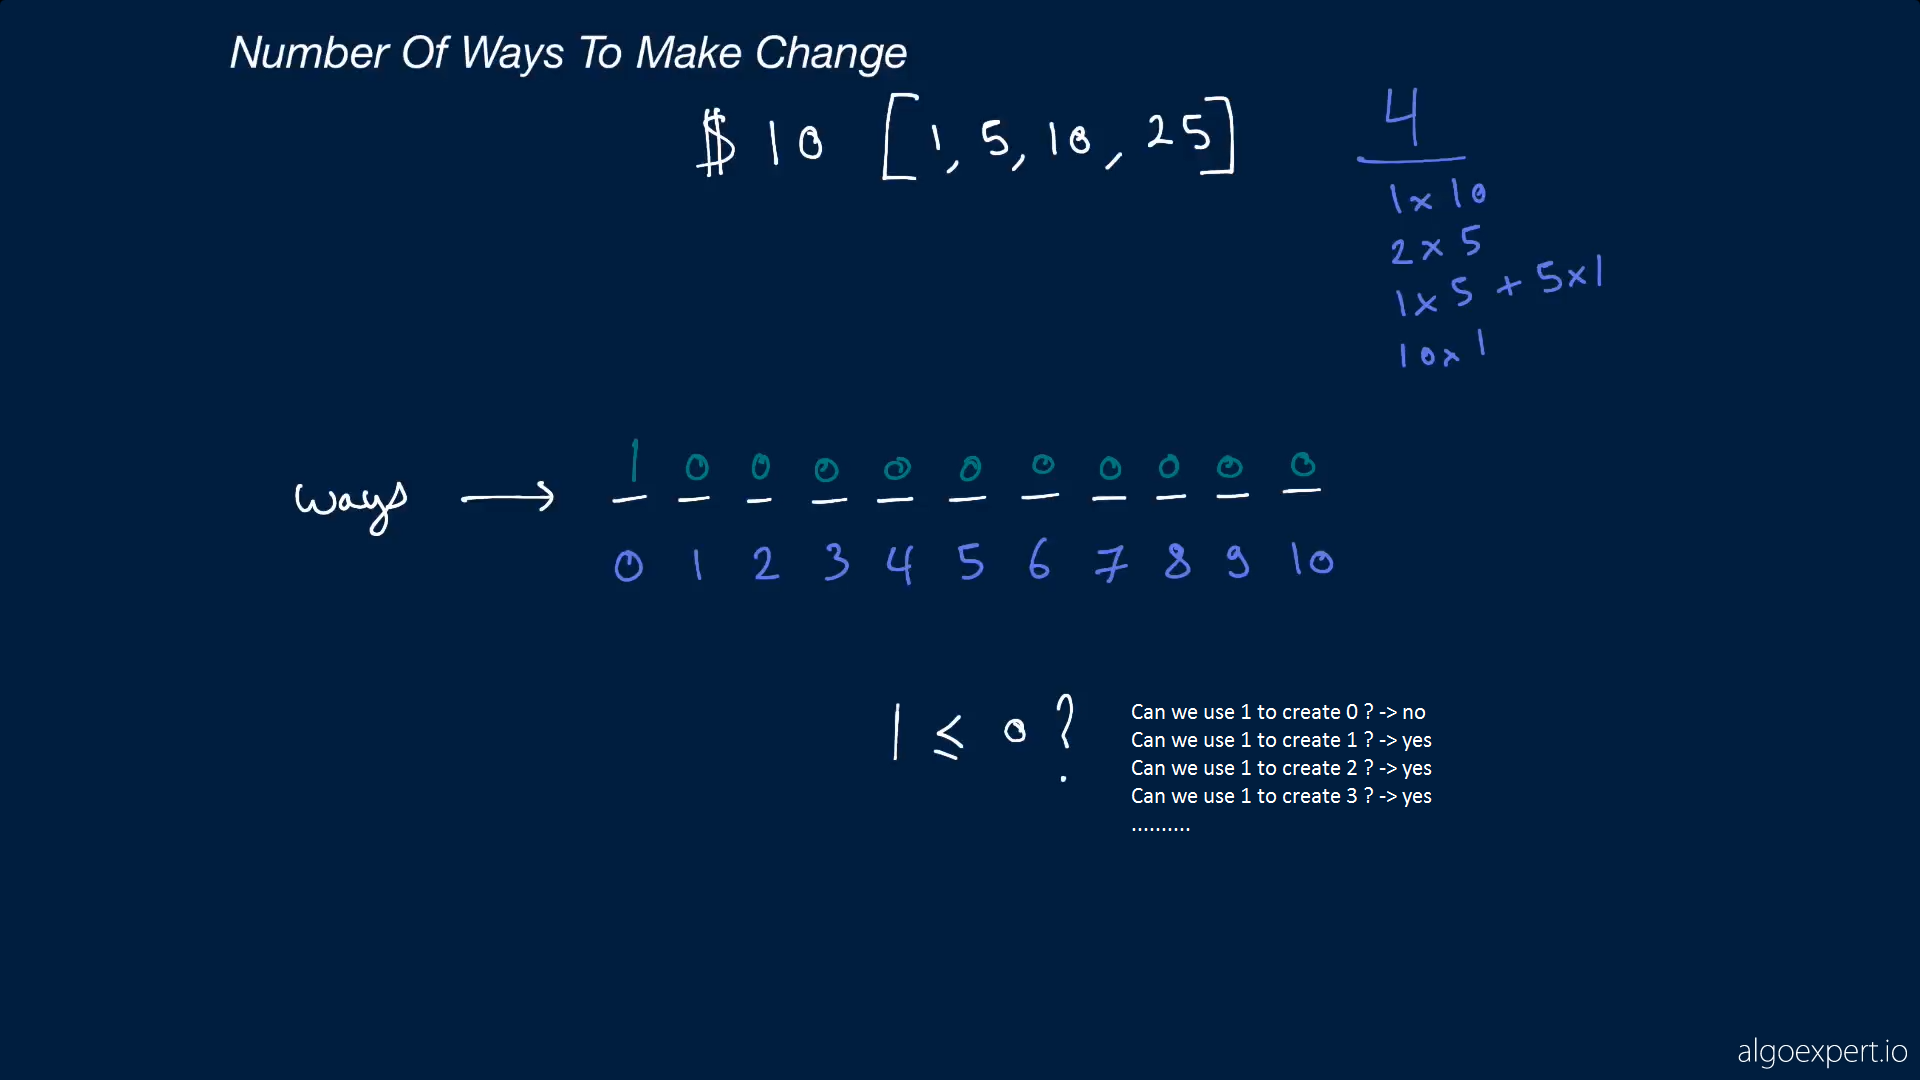 Number Of Ways To Make Change
$ 10 [1, 5, 10, 25]
4
1 x 10
2 x 5
1 x 5 + 5 x 1
10 x 1
ways → 1 0 0 0 0 0 0 0 0 0 0
0 1 2 3 4 5 6 7 8 9 10
1 ≤ 0 ?
Can we use 1 to create 0 ? -> no
Can we use 1 to create 1 ? -> yes
Can we use 1 to create 2 ? -> yes
Can we use 1 to create 3 ? -> yes
..........
algoexpert.io